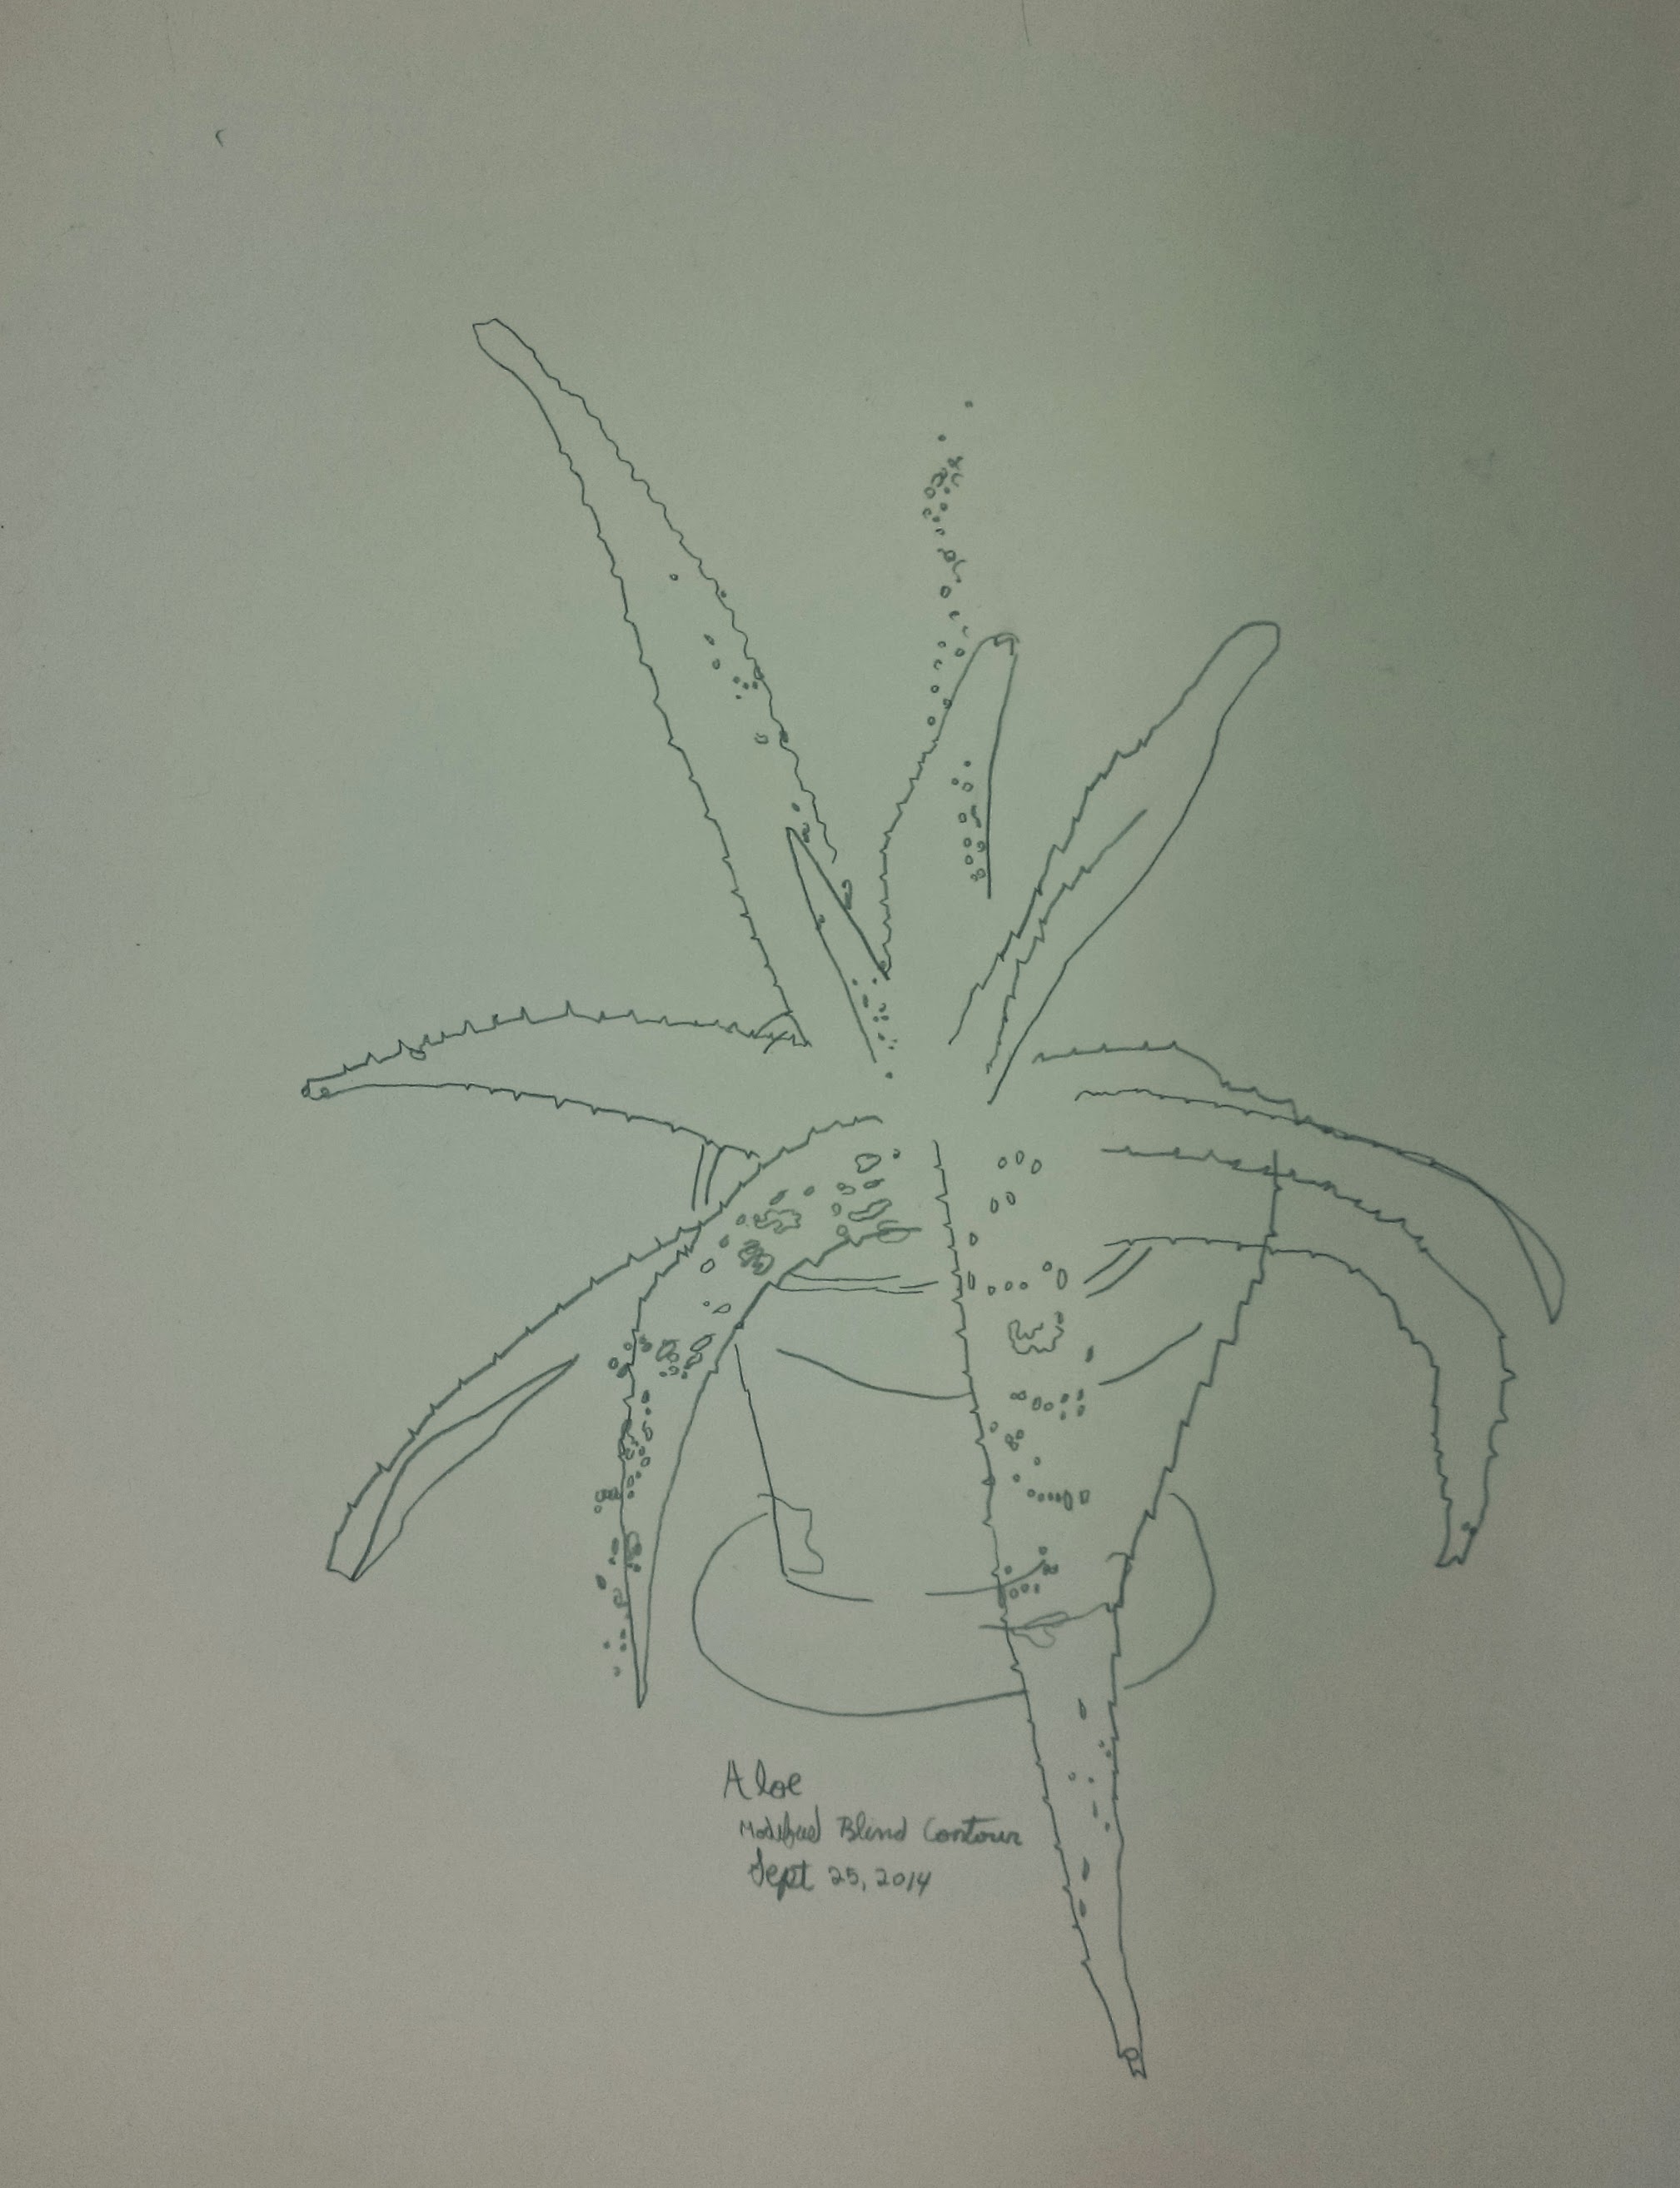 Aloe
Modified Blind Contour
Sept 25, 2014